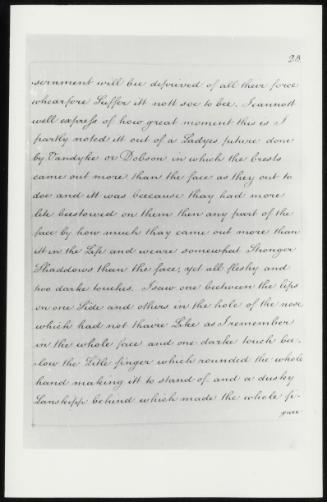 28
:sernment will bee deprived of all their force
whearfore Suffer itt nott soe to be. I cannott
well express of how great moment this is I
partly noted itt out of a Ladyes picture done
by Vandyke or Dobson in which the brests
came out more than the face as they out to
doe and itt was beecause thay had more
lite beestowed on them then any part of the
face by how much thay came out more than
itt in the Life and weare somewhat Stronger
Shaddows than the face, yet all fleshy and
noe darke touches. I saw one between the lips
on one Side and others in the hole of the nose
which had not theire Like as I remember
in the whole face and one darke touch be-
:low the Litle finger which rounded the whole
hand making itt to stand of and a dusky
Lanskipp behind which made the whole fi-
gure